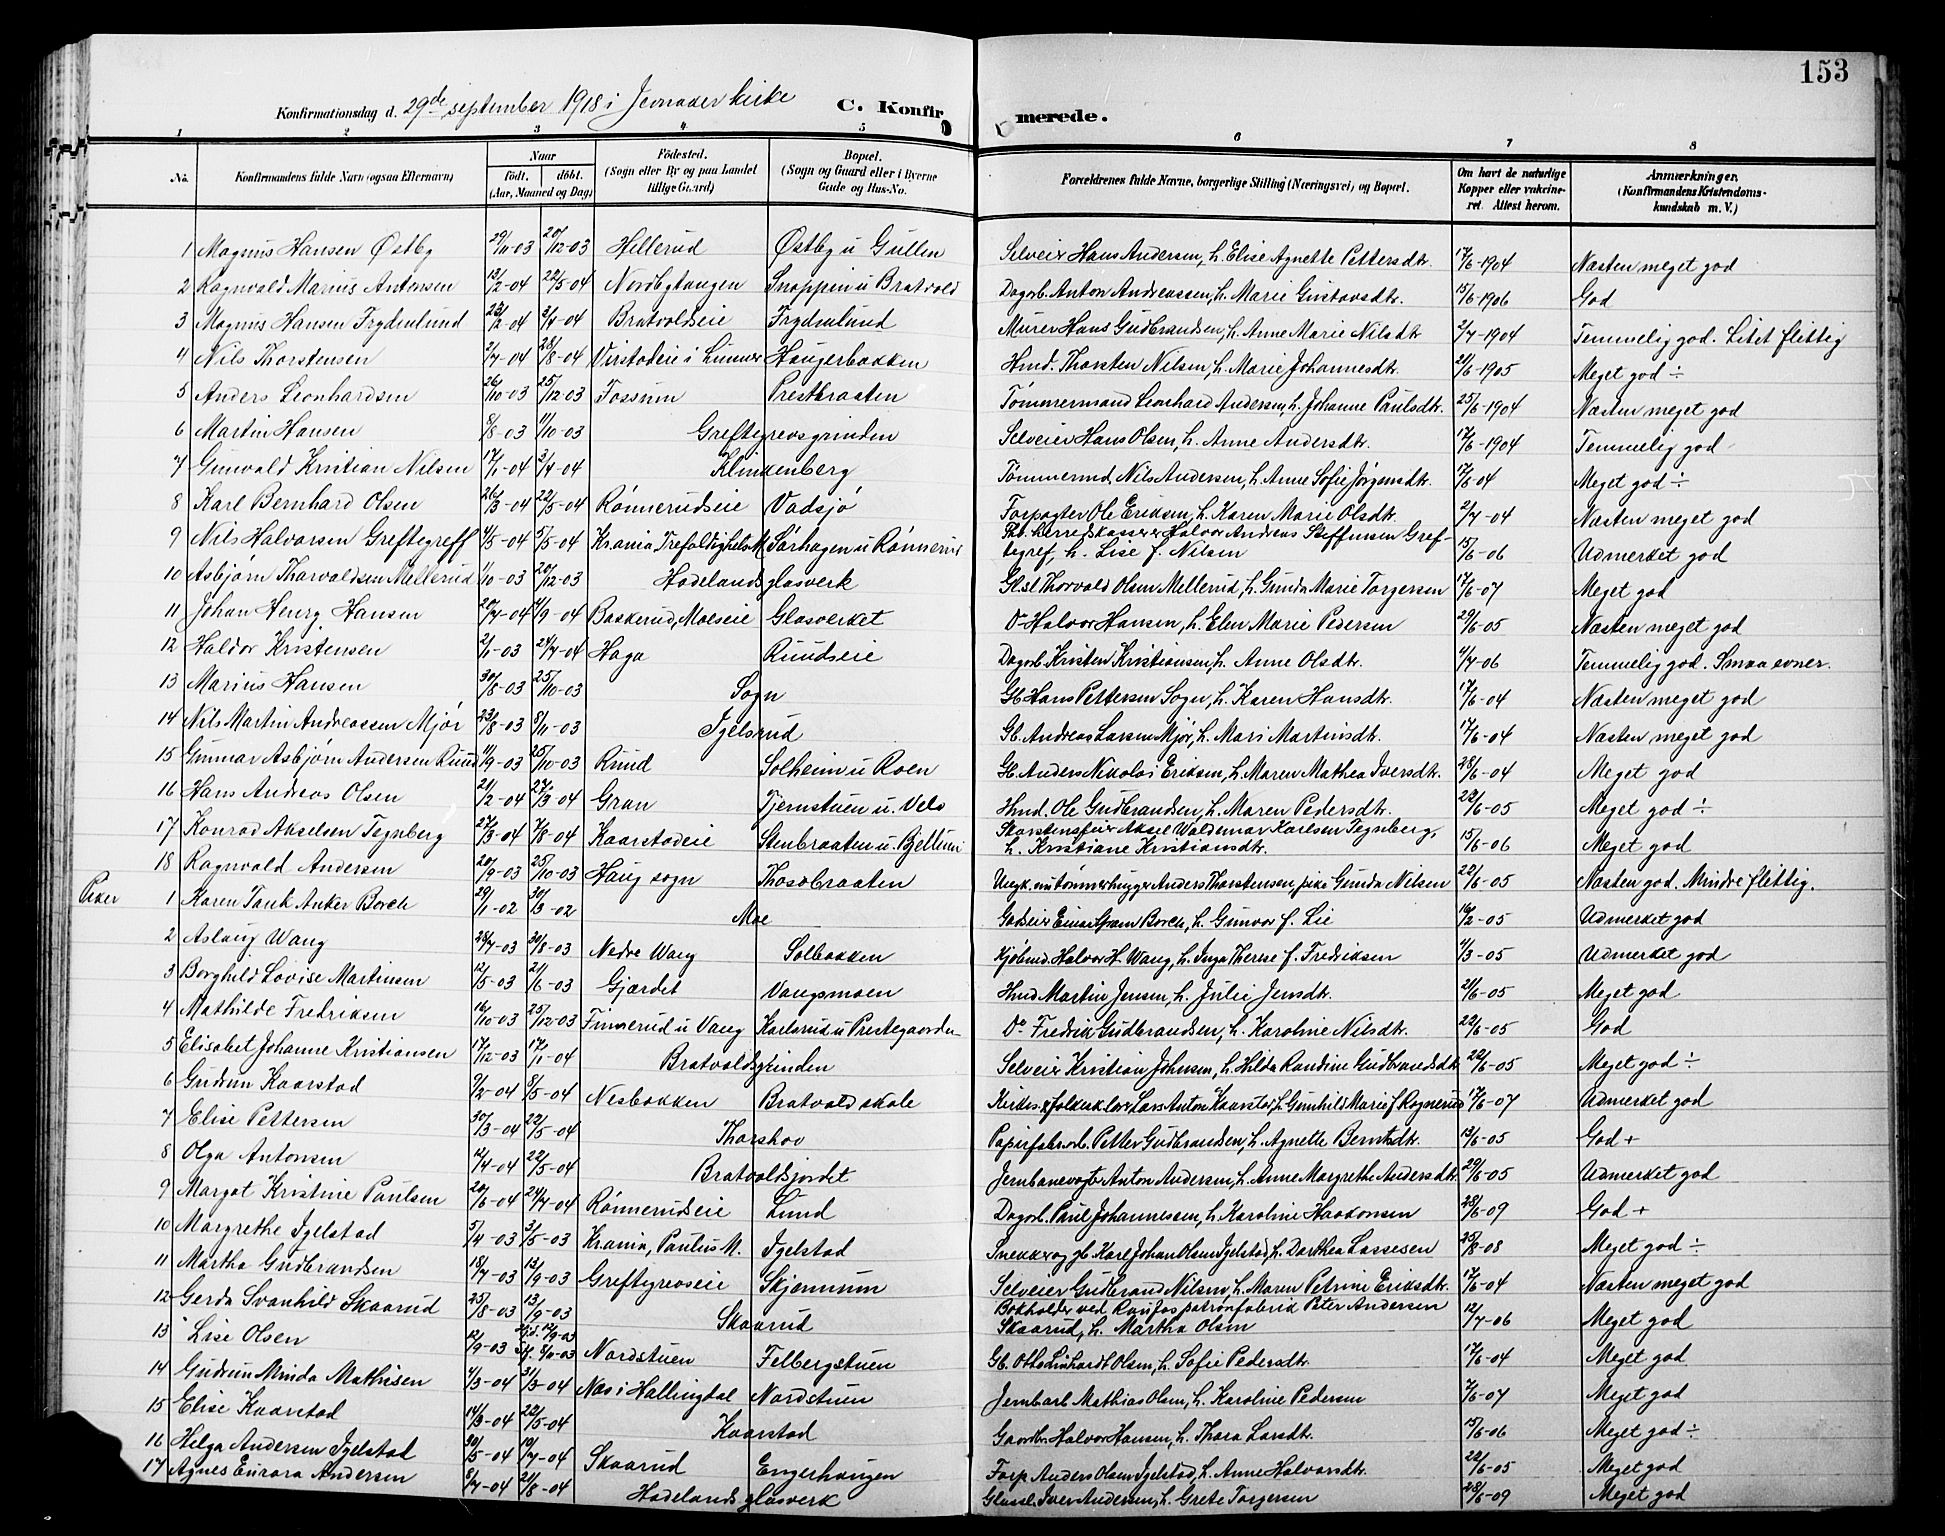 153
Konfirmationsdag d. 29de september 1918 i Jevnaker kirke C. Konfirmerede.
1 2 3 4 5 6 7 8
No. Konfirmandens fulde Navn (ogsaa Efternavn) Naar født. døbt. (Aar, Maaned og Dag) Fødested. (Sogn eller By og paa Landet tillige Gaard) Bopæl. (Sogn og Gaard eller i Byerne Gade og Hus-No. Forældrenes fulde Navne, borgerlige Stilling (Næringsvei) og Bopæl. Om havt de naturlige Kopper eller vakcineret. Attest herom. Anmærkninger. (Konfirmandens Kristendomskundskab m. V.)
1 Magnus Hansen Østby 29/11-03 20/12-03 Hellerud Østby u Gullen Selveier Hans Andersen, h. Elise Agnette Pettersdtr. 17/6-1904 Næsten meget god
2 Ragnvald Marius Antonsen 13/2-04 22/5-04 Nordbytangen Snoppen u Bratvold Dagarb. Anton Andreassen, h. Marie Gustavsdtr. 15/6-1906 God
3 Magnus Hansen Frydenlund 23/2-04 3/4-04 Bratvoldseie Frydenlund Murer Hans Gudbrandsen, h. Anne Marie Nilsdtr 2/7-1904 Temmelig god. Litet flittig
4 Nils Thorstensen 2/7-04 28/8-04 Virstadeie i Lunner Haugerbakken Hmd. Thorsten Nilsen, h. Marie Johannesdtr. 21/6-1905 Meget god ÷
5 Anders Leonhardsen 26/10-03 25/12-03 Fossum Prestbraaten Tømmermand Leonhard Andersen, h. Johanne Paulsdtr. 25/6-1904 Næsten meget god
6 Martin Hansen 8/8-03 11/10-03 Greftegrevsgrinden Selveier Hans Olsen, h. Anne Andersdtr. 17/6-1904 Temmelig god
7 Gunvald Kristian Nilsen 17/1-04 3/4-04 Klinkenberg Tømmermd. Nils Andersen, h. Anne Sofie Jørgensdtr. 17/6-04 Meget god ÷
8 Karl Bernhard Olsen 26/3-04 22/5-04 Rønnerudseie Vadsjø Forpagter Ole Eriksen, h. Karen Marie Olsdtr. 2/7-04 Næsten meget god
9 Nils Halvorsen Greftegreff 4/5-04 5/5-04 Krania Trefoldighets M. Sørhagen u Rønnerud Fhv. herredskasserer Halvor Andreas Steffensen Greftegref, h. Lise f. Nilsen 15/6-06 Udmerket god
10 Asbjørn Thorvaldsen Mellerud 1/10-03 20/12-03 Hadelands glasverk Glsl. Thorvald Olsen Mellerud, h. Gunda Marie Torgersen 17/6-07 Meget god
11 Johan Henry Hansen 20/7-04 4/9-04 Baskerud, Moeseie Glasverket Do Halvor Hansen, h. Elen Marie Pedersen 29/6-05 Næsten meget god
12 Haldor Kristensen 2/1-03 24/7-04 Haga Ruudseie Dagarb. Kristen Kristiansen, h. Anne Olsdtr. 4/7-06 Temmelig god. Smaa evner.
13 Marius Hansen 30/8-03 25/10-03 Sogn Gb. Hans Pettersen Sogn, h. Karen Hansdtr. 17/6-04 Næsten meget god
14 Nils Martin Andreassen Mjør 23/8-03 8/11-03 Igelsrud Gb. Andreas Larsen Mjør, h. Mari Martinsdtr. 17/6-04 Næsten meget god
15 Gunnar Asbjørn Andersen Ruud 11/9-03 25/10-03 Ruud Solheim u Roen Gb. Anders Nikolai Eriksen, h. Maren Mathea Iversdtr. 28/6-04 Meget god
16 Hans Andreas Olsen 21/2-04 27/3-04 Gran Tjernstuen u. Velo Hmd. Ole Gudbrandsen, h. Maren Pedersdtr. 22/6-05 Meget god ÷
17 Konrad Akselsen Tegnberg 27/3-04 7/8-04 Kaarstadeie Stenbraaten u. Bjellum Skorstensfeier Aksel Waldemar Karlsen Tegnberg, h. Kristiane Kristiansdtr. 15/6-06 Meget god
18 Ragnvald Andersen 20/9-03 25/10-03 Haug sogn Thosobraaten Ungk. nu tømmerhugger Anders Thorstensen, pike Gunda Nilsen 22/6-05 Næsten god. Mindre flittig.
Piker 1 Karen Tank Anker Borch 29/1-02 30/3-02 Moe Godseier Einar Gram Borch, h. Gunvor f. Lie 16/2-05 Udmerket god
2 Aslaug Wang 28/7-03 30/8-03 Nedre Wang Solbakken Kjøbmd. Halvor H. Wang, h. Inga Therese f. Fredriksen 4/3-05 Udmerket god
3 Borghild Lovise Martinsen 12/5-03 21/6-03 Gjærdet Vangsmoen Hmd Martin Jensen, h. Julie Jensdtr. 21/6-05 Meget god
4 Mathilde Fredriksen 16/10-03 25/12-03 Finnerud u Vang Karlsrud u Prestegaarden Do Fredrik Gudbrandsen, h. Karoline Nilsdtr. 22/6-05 God
5 Elisabet Johanne Kristiansen 17/12-03 17/1-04 Bratvoldsgrinden Selveier Kristian Johnsen, h. Hilda Randine Gudbrandsdtr 22/6-05 Meget god ÷
6 Gudrun Kaarstad 9/2-04 8/5-04 Nesbakken Bratvold skole Kirkes. & folkesk.lærer Lars Anton Kaarstad, h. Gunhild Marie f Rognerud 17/6-07 Udmerket god
7 Elise Pettersen 30/3-04 22/5-04 Thorshov Papirfabr.arb. Petter Gudbrandsen, h. Agnette Berntsdtr. 13/6-05 God +
8 Olga Antonsen 12/4-04 22/5-04 Bratvoldsjordet Jernbanevogter Anton Andersen, h. Anne Margrethe Andersdtr. 29/6-05 Udmerket god
9 Margot Kristine Paulsen 20/6-04 24/7-04 Rønnerudseie Lund Dagarb. Paul Johannessen, h. Karoline Haakonsen 28/6-09 God +
10 Margrethe Igelstad 5/4-03 3/5-03 Krania, Paulus M. Igelstad Snekker og gb. Karl Johan Olsen Igelstad, h. Dorthea Lassesen 25/8-08 Meget god ÷
11 Martha Gudbrandsen 18/7-03 13/9-03 Greftegrevseie Skjennum Selveier Gudbrand Nilsen, h. Maren Petrine Eriksdtr. 17/6-04 Næsten meget god
12 Gerda Svanhild Skaarud 25/8-03 13/9-03 Skaarud Bokholder ved Raufos patronfabrik Peter Andersen Skaarud, h. Martha Olsen 12/7-06 Meget god
13 Lise Olsen 12/9-03 Hjd. 12/9-03 St. 8/11-03 Nordstuen Felbergstuen Gb. Otto Linhardt Olsen, h. Sofie Pedersdtr. 17/6-04 Meget god
14 Gudrun Minda Mathisen 4/3-04 31/3-04 Nes i Hallingdal Nordstuen Jernbarb. Mathias Olsen, h. Karoline Pedersen 7/6-07 Meget god
15 Elise Kaarstad 14/3-04 22/5-04 Kaarstad Gaardbr. Halvor Hansen, h. Thora Larsdtr. 15/6-06 Meget god ÷
16 Helga Andersen Igelstad 30/5-04 10/7-04 Skaarud Engerhaugen Forp. Anders Olsen Igelstad, h. Anne Halvorsdtr. 22/6-05 Meget god
17 Agnes Eurora Andersen 8/7-04 21/8-04 Hadelands glasverk Glassl. Iver Andersen, h. Grete Torgersen 28/6-09 Meget god